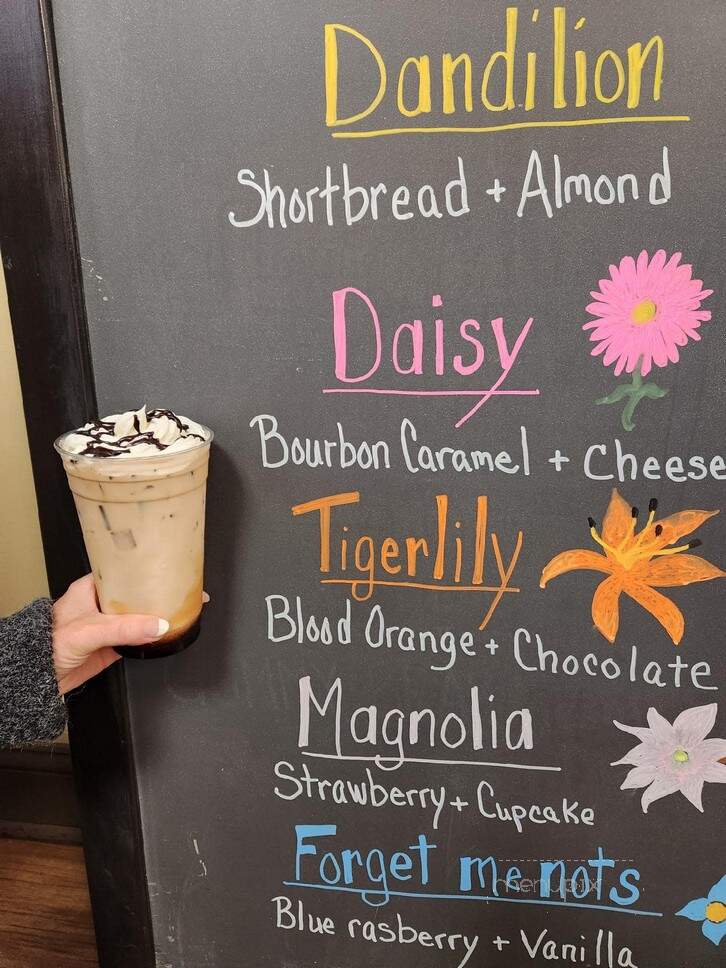 Dandilion
Shortbread + Almond
Daisy
Bourbon Caramel + Cheese
Tigerlily
Blood Orange + Chocolate
Magnolia
Strawberry + Cupcake
Forget me nots
menupix
Blue rasberry + Vanilla